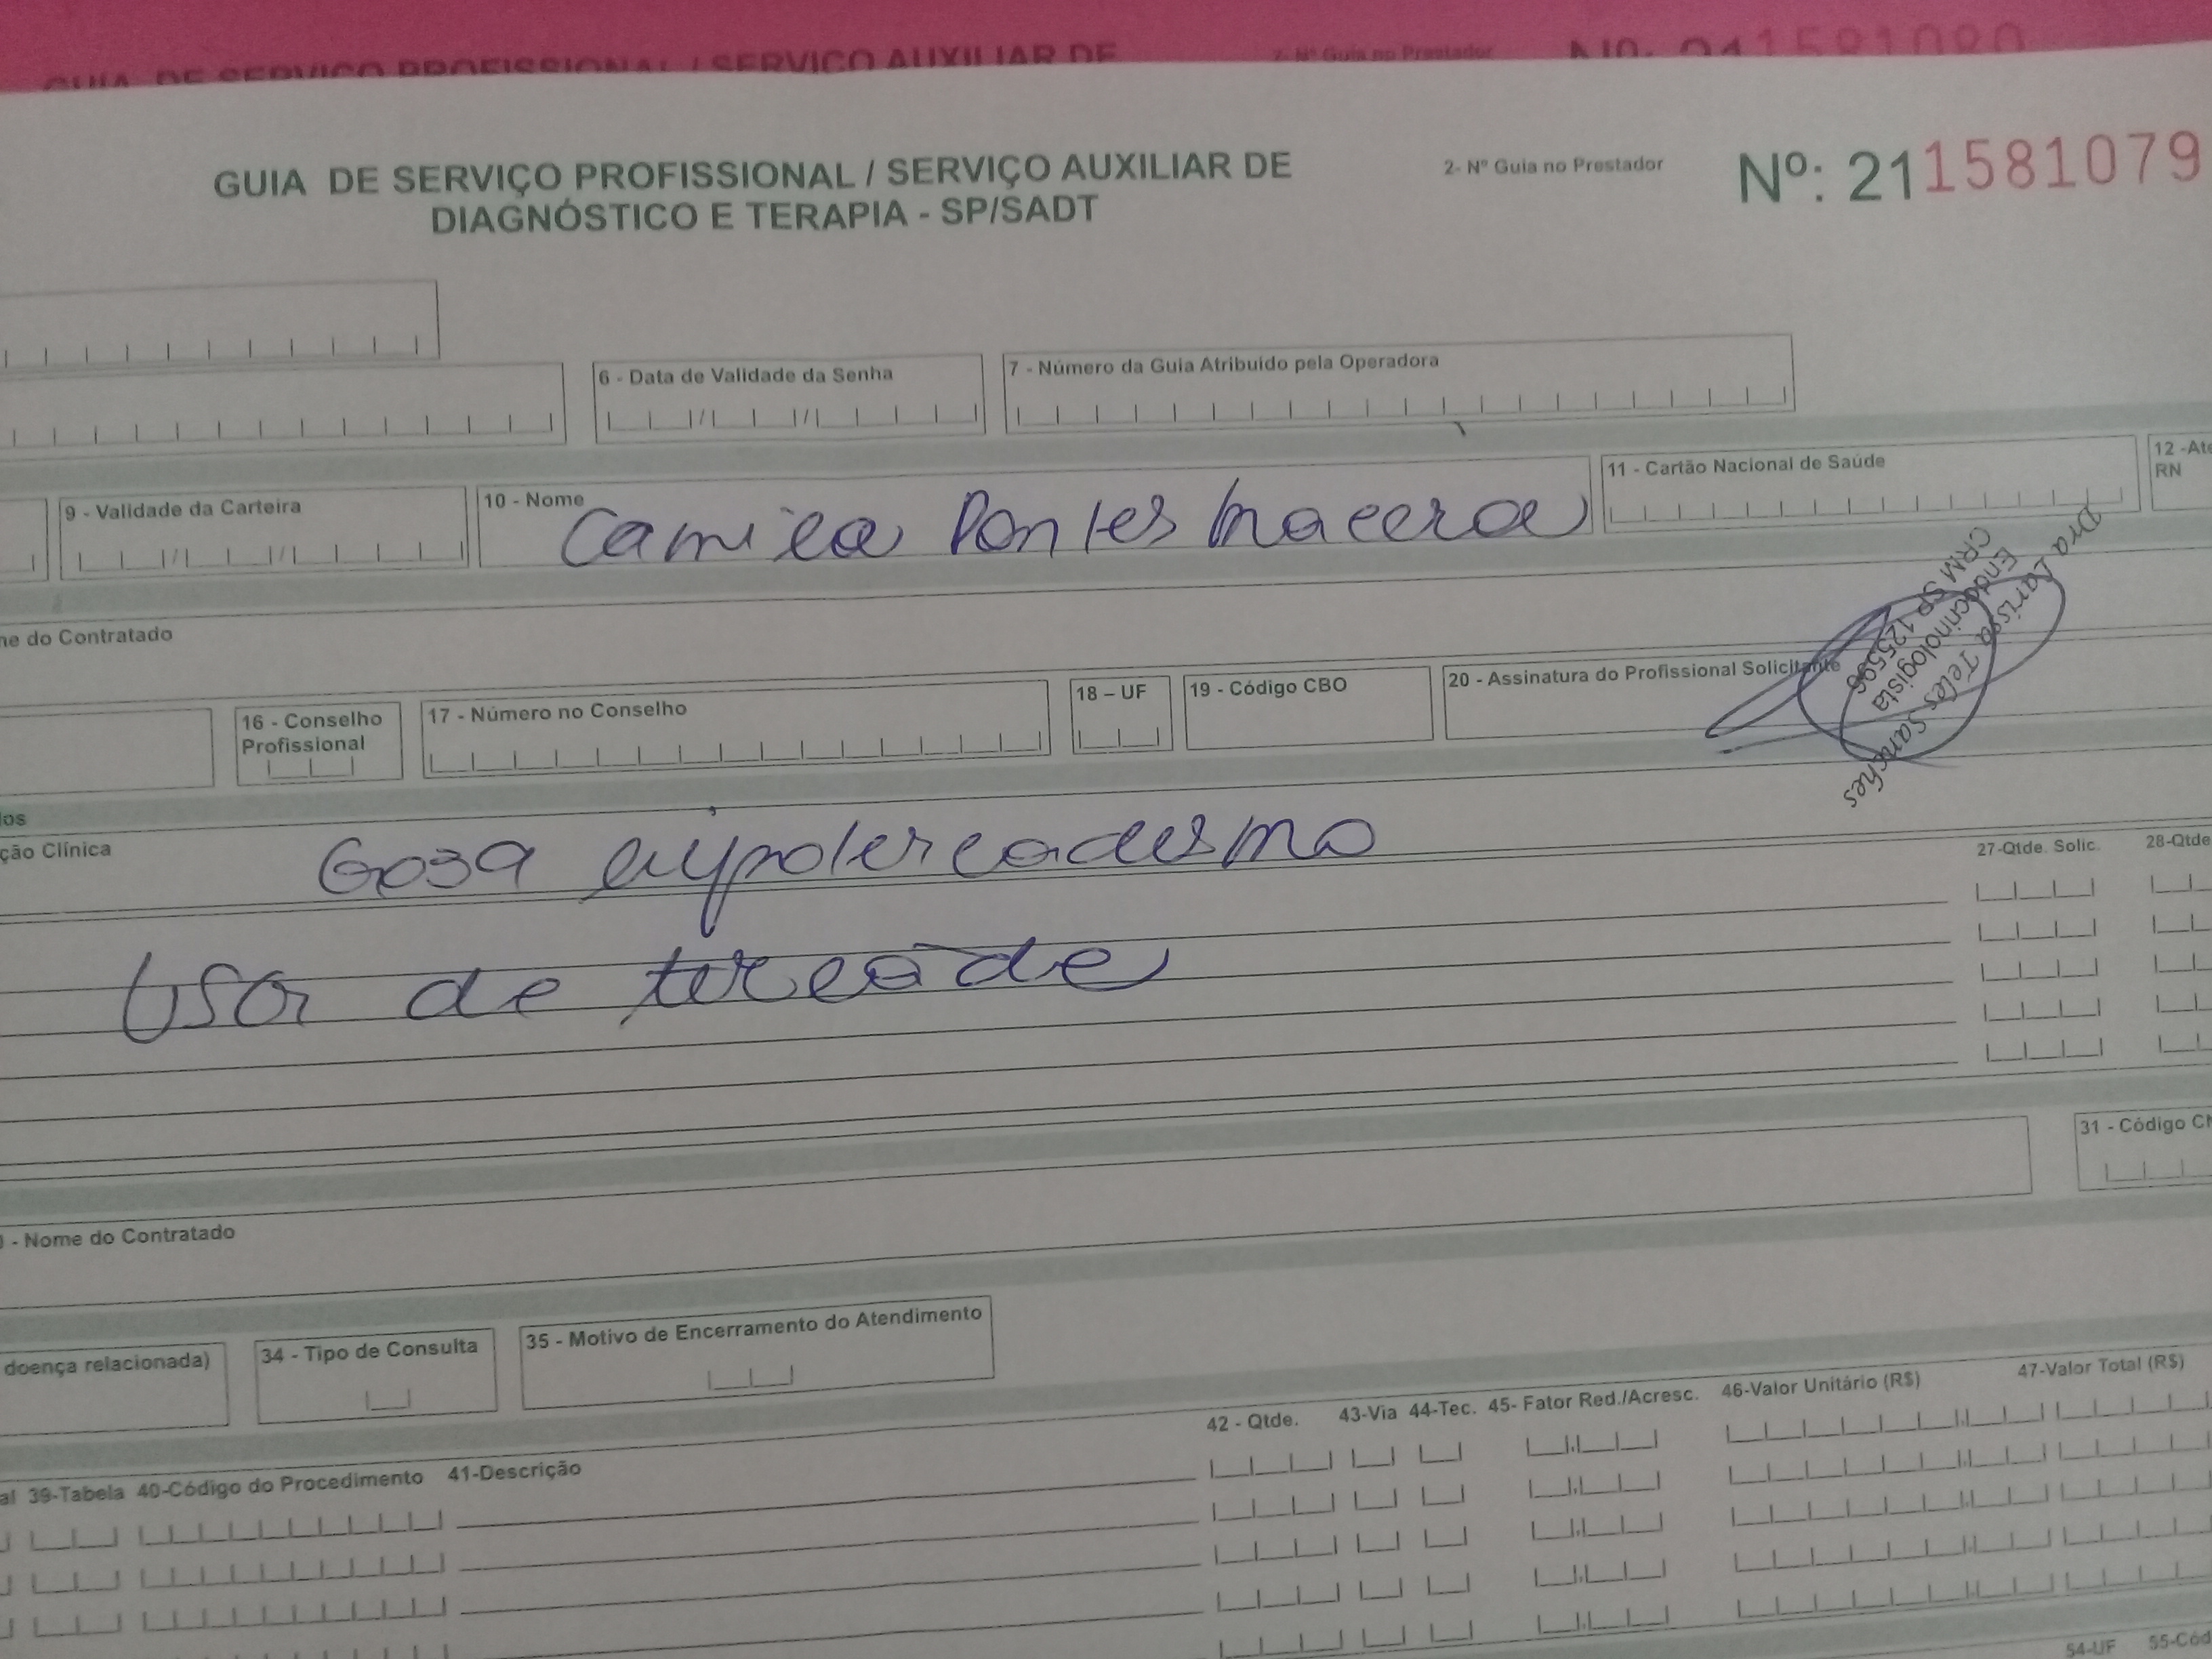 GUIA DE SERVIÇO PROFISSIONAL / SERVIÇO AUXILIAR DE
DIAGNÓSTICO E TERAPIA - SP/SADT
2- Nº Guia no Prestador
Nº. 211581079
6 - Data de Validade da Senha
7 - Número da Guia Atribuído pela Operadora
9 - Validade da Carteira
10 - Nome
11 - Cartão Nacional de Saúde
12 - Ate
RN
Camila Pontes
me do Contratado
16 - Conselho
Profissional
17 - Número no Conselho
18 – UF
19 - Código CBO
20 - Assinatura do Profissional Solicitante
Dra Larissa Teles Sanches
Endocrinologista
CRM SP 125596
dos
ção Clínica
27-Qtde. Solic.
28-Qtde
USG de tireoide
) - Nome do Contratado
31 - Código CN
doença relacionada)
34 - Tipo de Consulta
35 - Motivo de Encerramento do Atendimento
al 39-Tabela 40-Código do Procedimento 41-Descrição
42 - Qtde.
43-Via 44-Tec. 45- Fator Red./Acresc.
46-Valor Unitário (R$)
47-Valor Total (R$)
54-UF
55-Cód